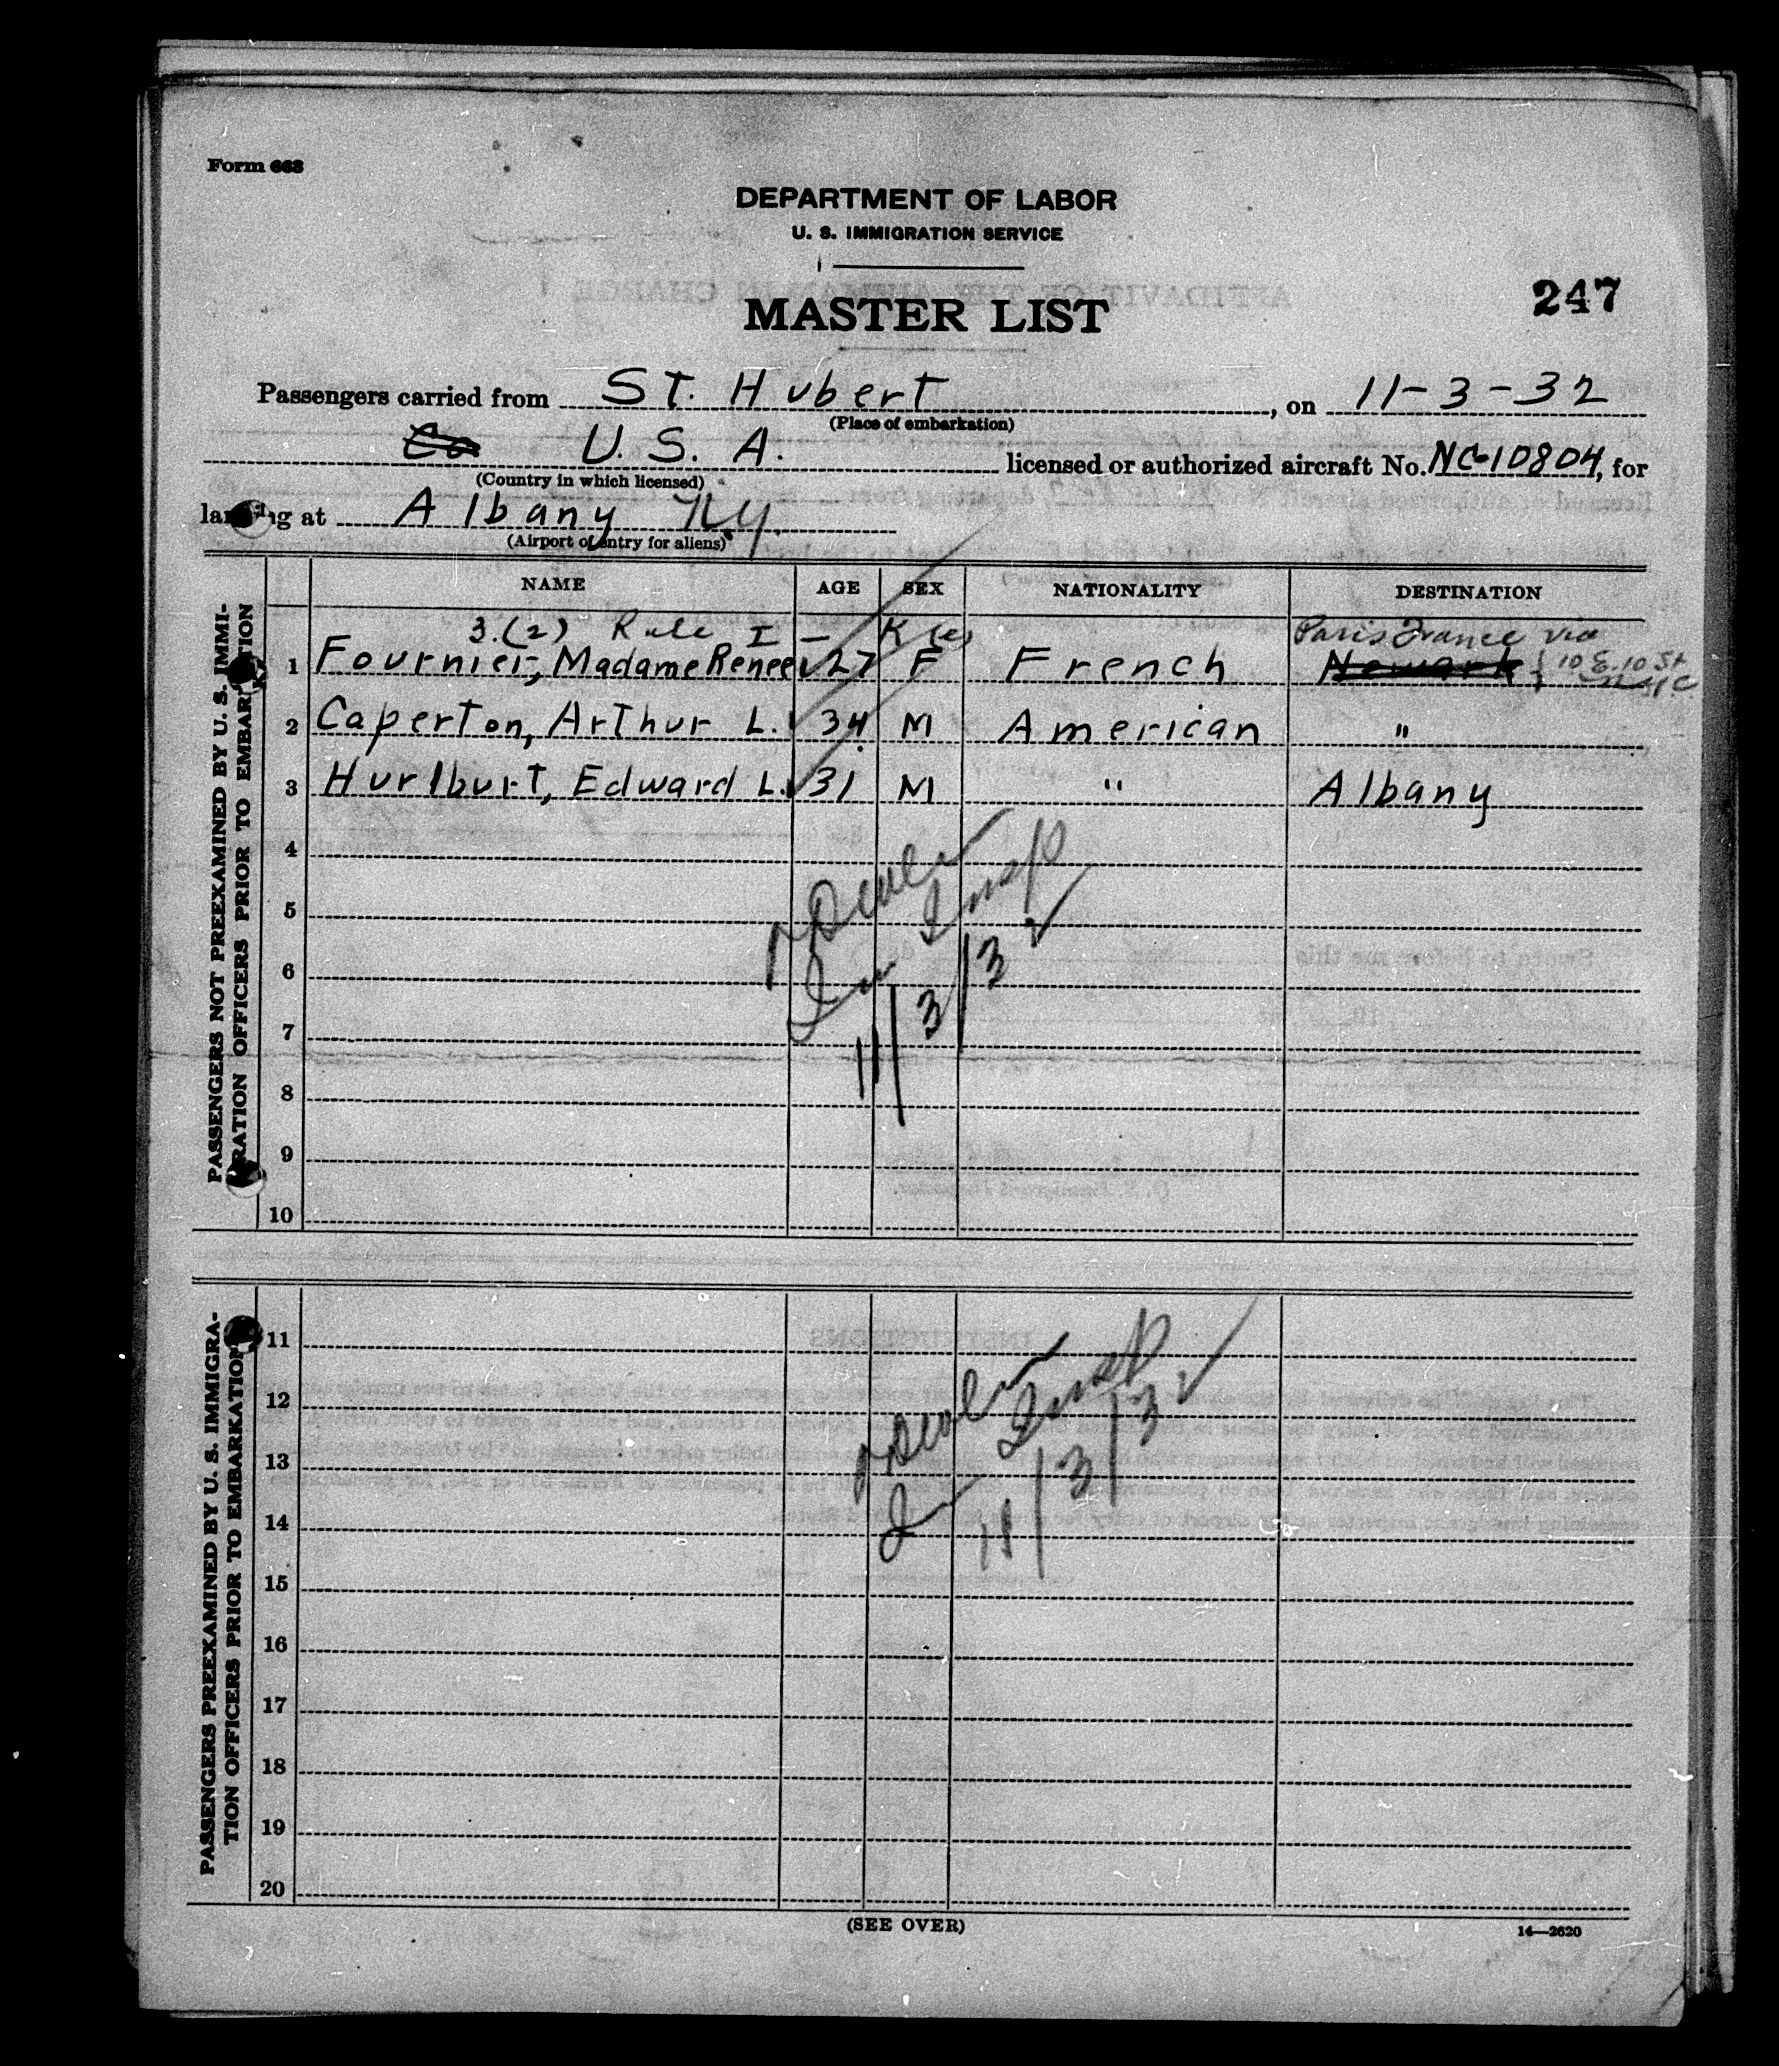 Form 663
DEPARTMENT OF LABOR
U. S. IMMIGRATION SERVICE
MASTER LIST
247
Passengers carried from St. Hubert, on 11-3-32
(Place of embarkation)
U. S. A. licensed or authorized aircraft No. NC-10804, for
(Country in which licensed)
landing at Albany NY.
(Airport of entry for aliens)
NAME AGE SEX NATIONALITY DESTINATION
3.(2) Rule I — K (e) Paris France via
1 Fournier, Madame Renee 27 F French Newark 10 E. 10 St
NYC
2 Caperton, Arthur L. 34 M American "
3 Hurlburt, Edward L. 31 M " Albany
4
5
6
7
8
9
10
PASSENGERS NOT PREEXAMINED BY U. S. IMMI-
GRATION OFFICERS PRIOR TO EMBARKATION
Insp
11/3/32
11
12
13
14
15
16
17
18
19
20
PASSENGERS PREEXAMINED BY U. S. IMMIGRA-
TION OFFICERS PRIOR TO EMBARKATION
Insp
11/3/32
(SEE OVER)
14—2620